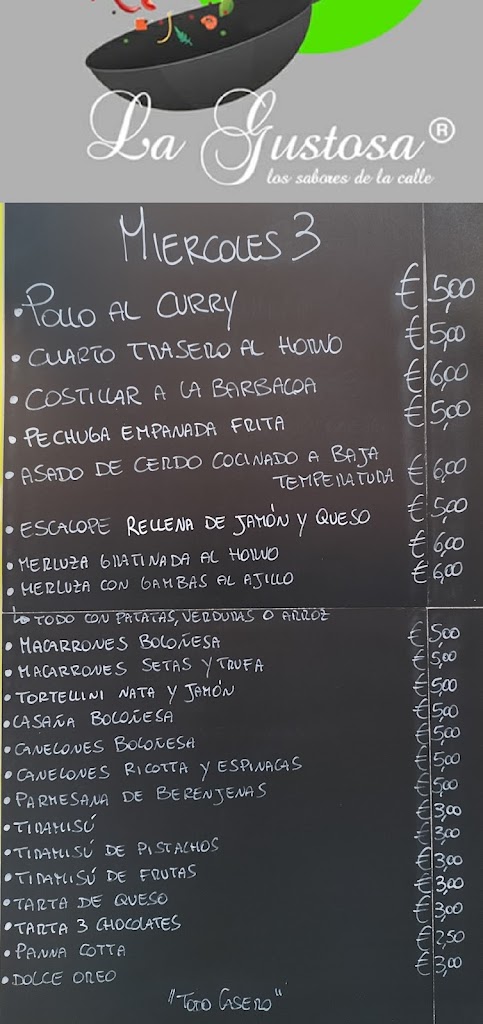 La Gustosa®
los sabores de la calle
MIERCOLES 3
• POLLO AL CURRY € 5,00
• CUARTO TRASERO AL HORNO € 5,00
• COSTILLAR A LA BARBACOA € 6,00
• PECHUGA EMPANADA FRITA € 5,00
• ASADO DE CERDO COCINADO A BAJA
TEMPERATURA € 6,00
• ESCALOPE RELLENA DE JAMÓN Y QUESO € 5,00
• MERLUZA GRATINADA AL HORNO € 6,00
• MERLUZA CON GAMBAS AL AJILLO € 6,00
↳ TODO CON PATATAS, VERDURAS O ARROZ
• MACARRONES BOLOÑESA € 5,00
• MACARRONES SETAS Y TRUFA € 5,00
• TORTELLINI NATA Y JAMÓN € 5,00
• LASAÑA BOLOÑESA € 5,00
• CANELONES BOLOÑESA € 5,00
• CANELONES RICOTTA Y ESPINACAS € 5,00
• PARMESANA DE BERENJENAS € 5,00
• TIRAMISÚ € 3,00
• TIRAMISÚ DE PISTACHOS € 3,00
• TIRAMISÚ DE FRUTAS € 3,00
• TARTA DE QUESO € 3,00
• TARTA 3 CHOCOLATES € 3,00
• PANNA COTTA € 2,50
• DOLCE OREO € 3,00
"TODO CASERO"